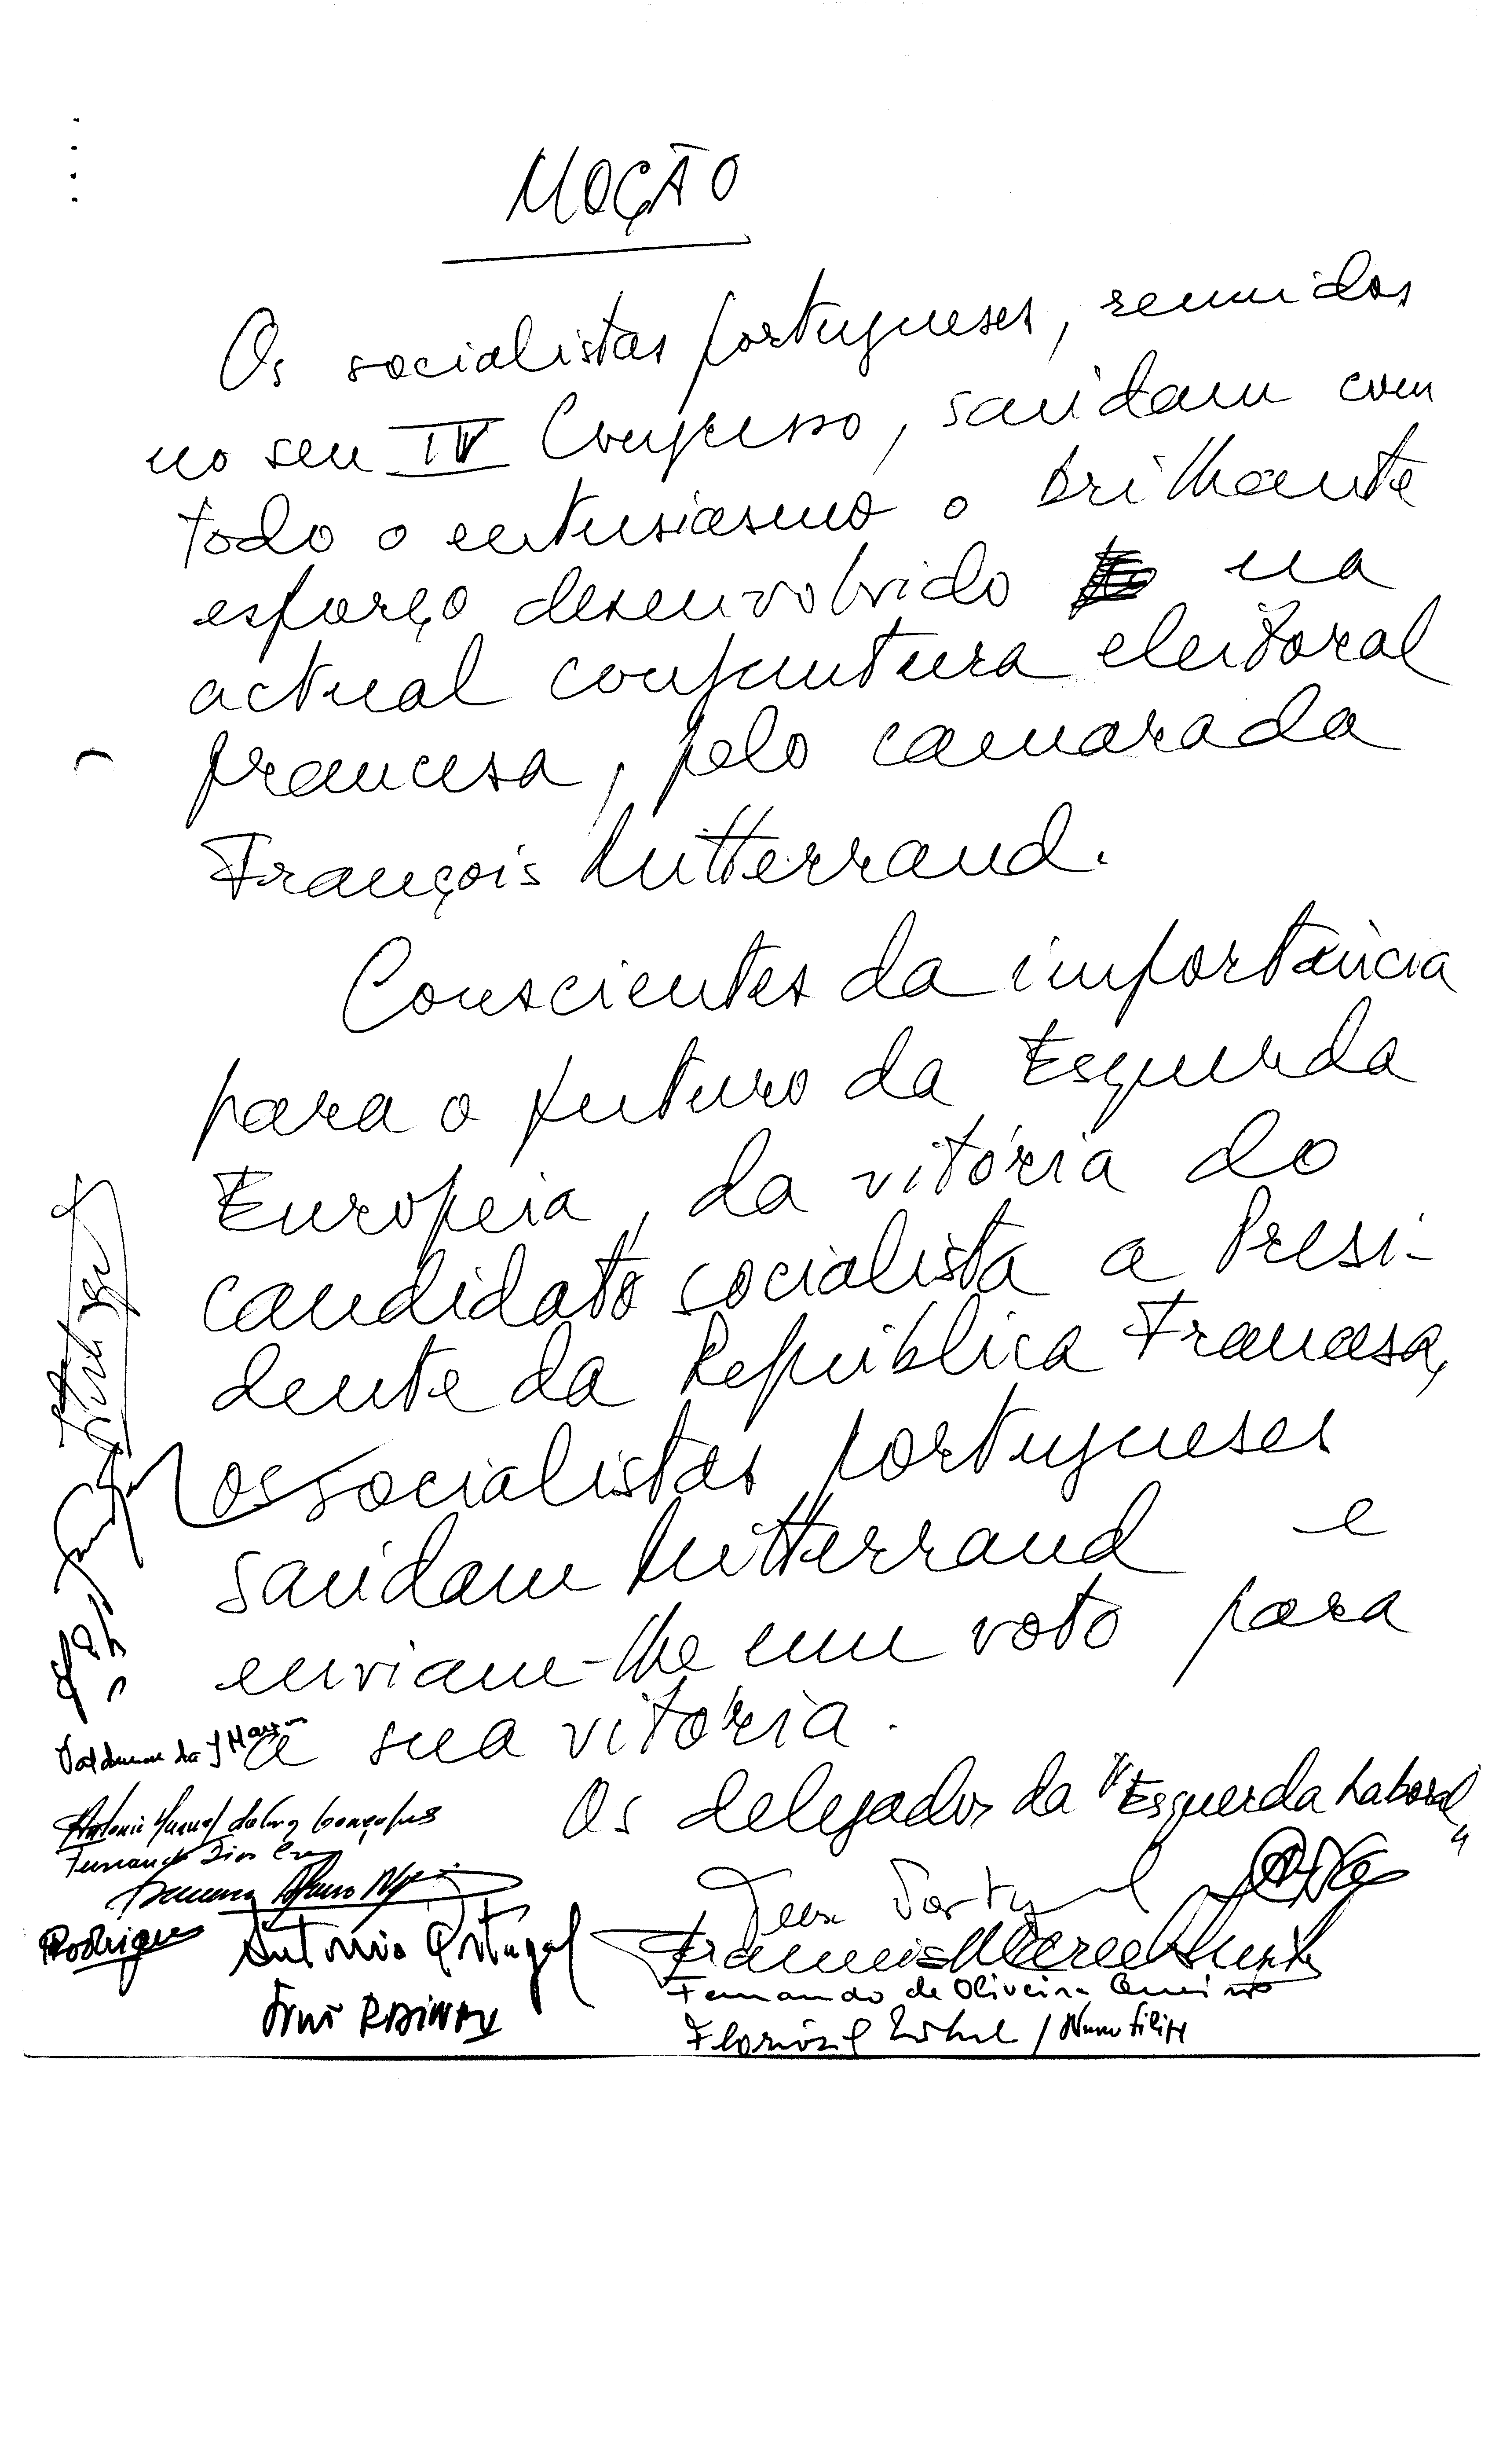 MOÇÃO
Os socialistas portugueses, reunidos
no seu IV Congresso, saúdam com
todo o entusiasmo o brilhante
esforço desenvolvido na
actual conjuntura eleitoral
francesa, pelo camarada
François Mitterrand.
Conscientes da importância
para o futuro da Esquerda
Europeia, da vitória do
candidato socialista a Presi-
dente da República Francesa,
os socialistas portugueses
saúdam Mitterrand e
enviam-lhe um voto para
a sua vitória.
Os delegados da "Esquerda Laboral"
António Manuel Gonçalves
Fernando Dias
Rodrigues António Portugal
Fernando de Oliveira
Nuno Filipe